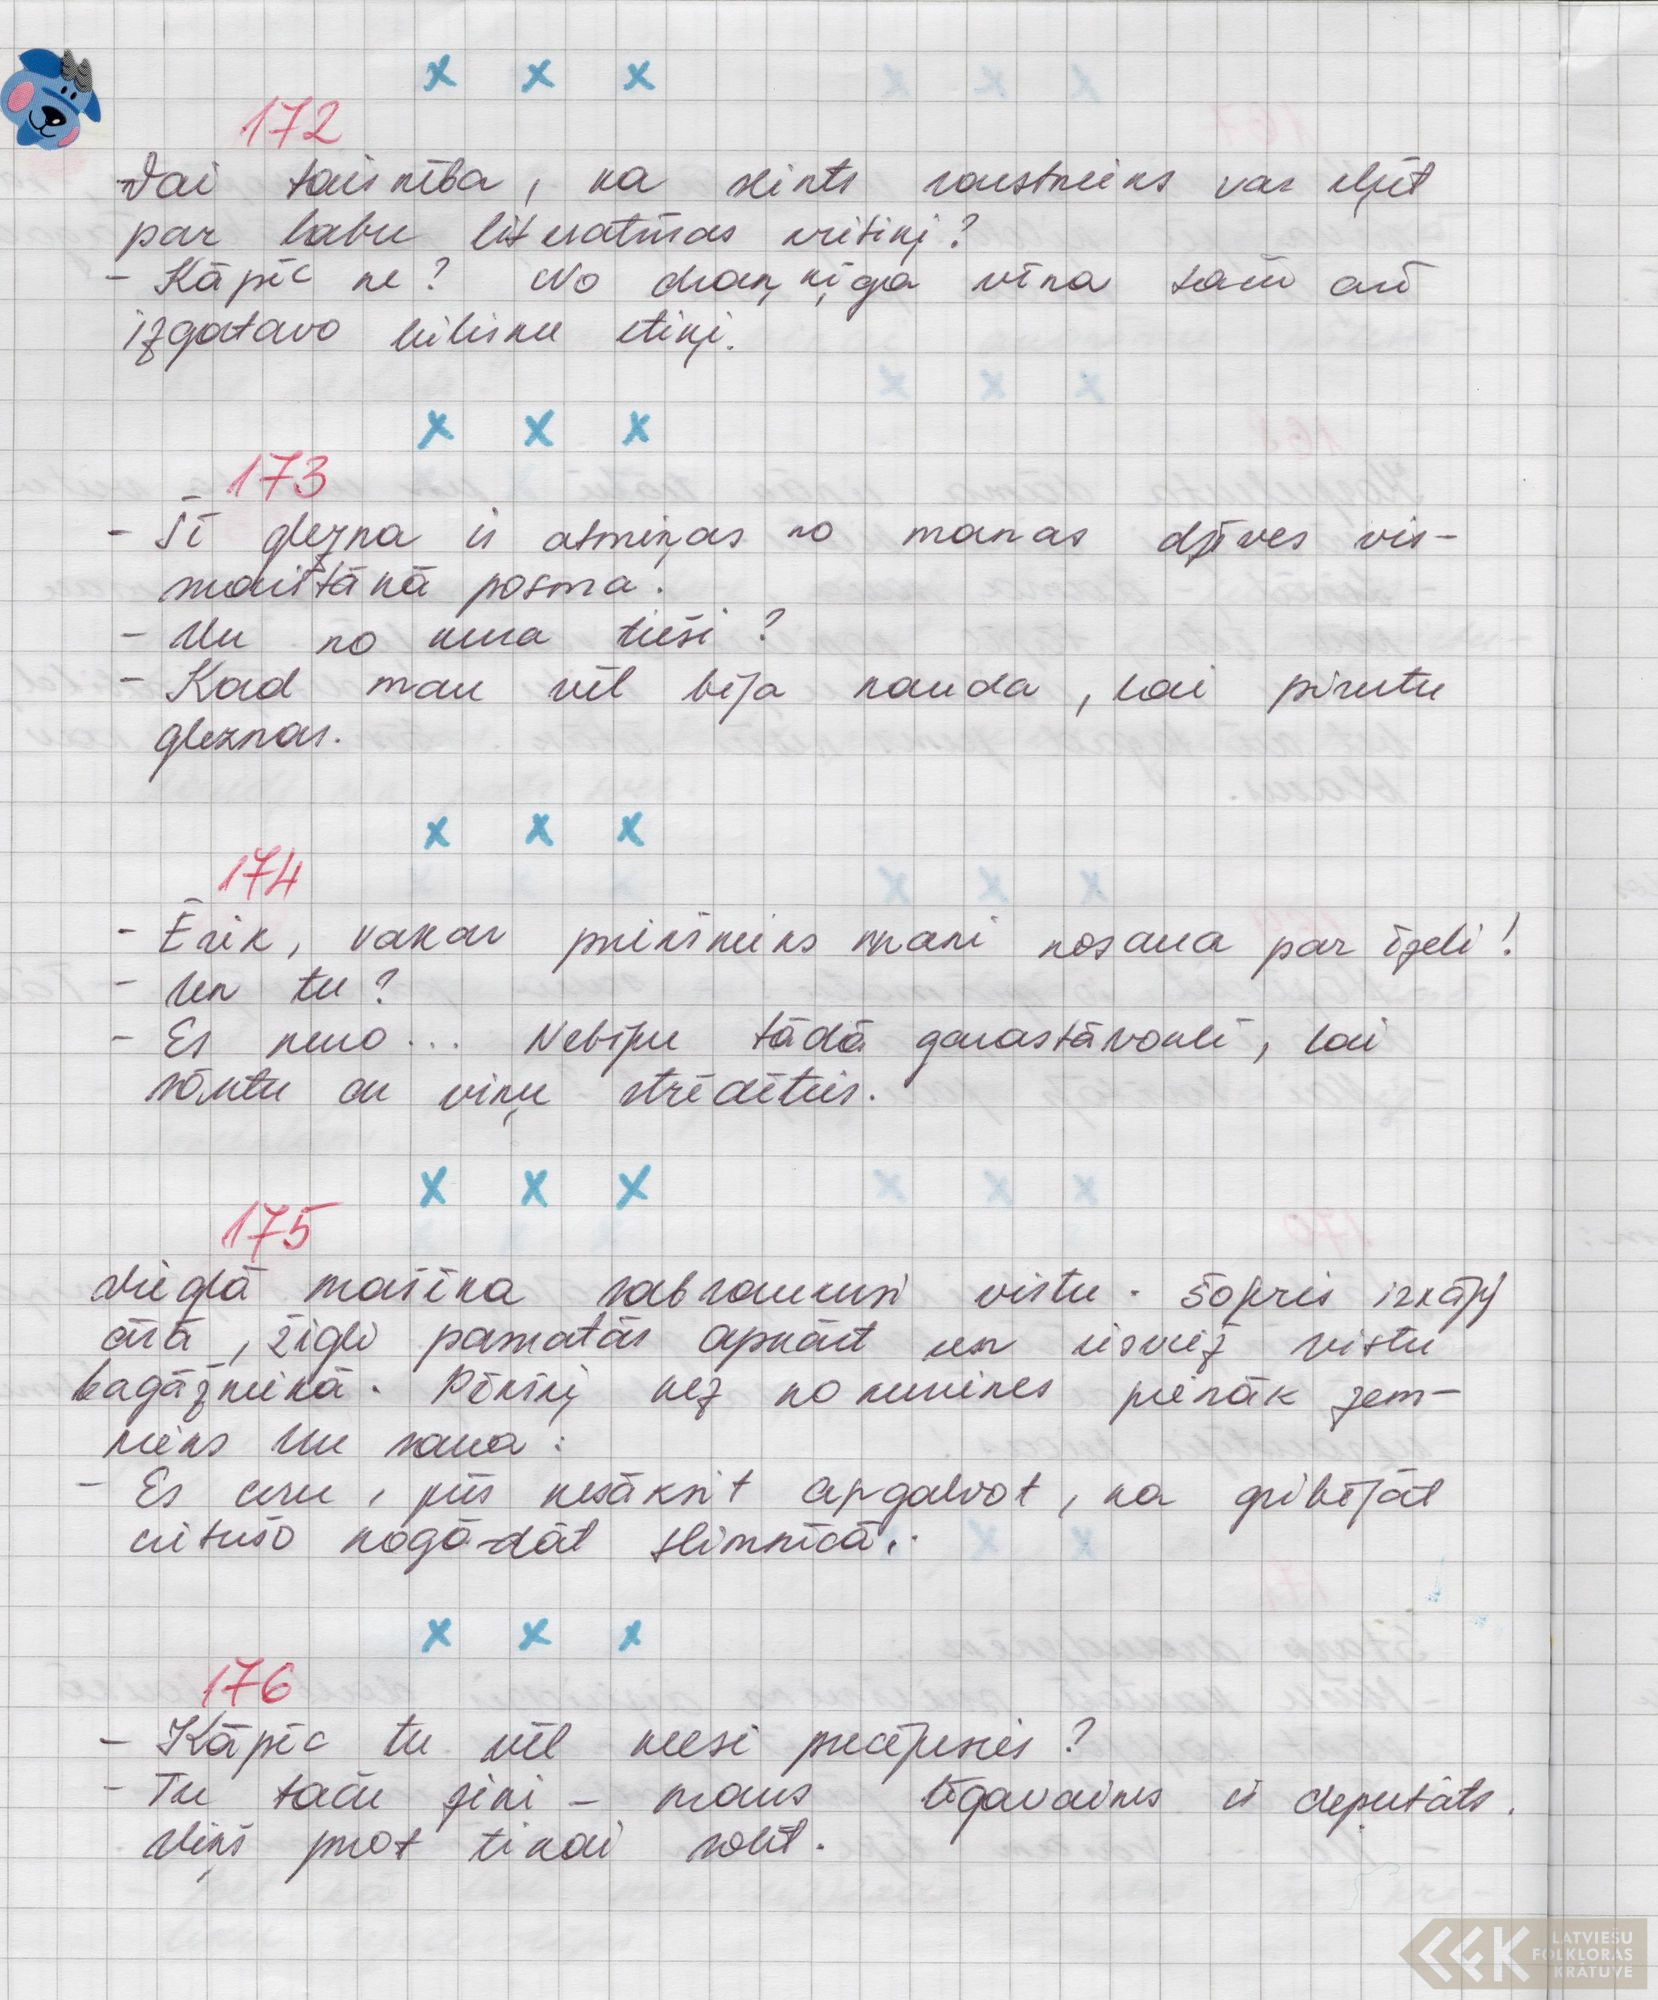 x x x
172
Vai taisnība, ka slikts rakstnieks var kļūt
par labu literatūras kritiķi?
- Kāpēc ne? No draņķīga vīna taču arī
izgatavo lielisku etiķi.
x x x
173
- Šī glezna ir atmiņas no manas dzīves vis-
skaistākā posma.
- Un no kura tieši?
- Kad man vēl bija nauda, lai pirktu
gleznas.
x x x
174
- Ērik, vakar priekšnieks mani nosauca par ēzeli!
- Un tu?
- Es neko... Nebiju tādā garastāvoklī, lai
sāktu ar viņu strīdēties.
x x x
175
Vieglā mašīna sabraukusi vistu. Šoferis izkāpj
ārā, žigli pamatās apkārt un iesviež vistu
bagāžniekā. Pēkšņi nez no kurienes pienāk zem-
nieks un saka:
- Es ceru, jūs nesāksit apgalvot, ka gribējāt
cietušo nogādāt slimnīcā.
x x x
176
- Kāpēc tu vēl neesi precējusies?
- Tu taču zini - mans līgavainis ir deputāts.
Viņš prot tikai solīt.
LATVIEŠU
FOLKLORAS
KRĀTUVE